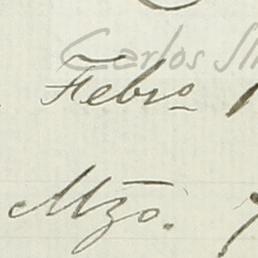 Carlos
Febro
Mzo.